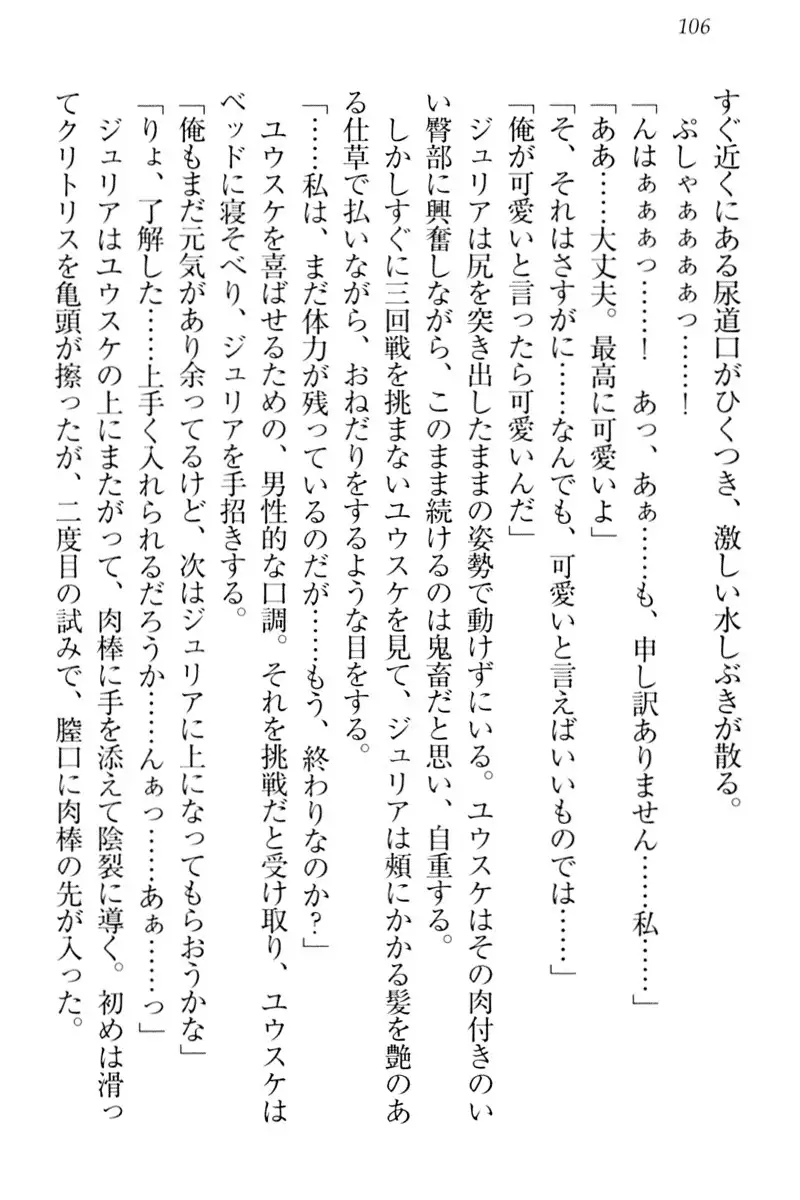 106
すぐ近くにある尿道口がひくつき、激しい水しぶきが散る。
ぷしゃぁぁぁぁっ……！
「んはぁぁぁっ……！　あっ、あぁ……も、申し訳ありません……私……」
「ああ……大丈夫。最高に可愛いよ」
「そ、それはさすがに……なんでも、可愛いと言えばいいものでは……」
「俺が可愛いと言ったら可愛いんだ」
ジュリアは尻を突き出したままの姿勢で動けずにいる。ユウスケはその肉付きのい
い臀部に興奮しながら、このまま続けるのは鬼畜だと思い、自重する。
しかしすぐに三回戦を挑まないユウスケを見て、ジュリアは頬にかかる髪を艶のあ
る仕草で払いながら、おねだりをするような目をする。
「……私は、まだ体力が残っているのだが……もう、終わりなのか？」
ユウスケを喜ばせるための、男性的な口調。それを挑戦だと受け取り、ユウスケは
ベッドに寝そべり、ジュリアを手招きする。
「俺もまだ元気があり余ってるけど、次はジュリアに上になってもらおうかな」
「りょ、了解した……上手く入れられるだろうか……んぁっ……あぁ……っ」
ジュリアはユウスケの上にまたがって、肉棒に手を添えて陰裂に導く。初めは滑っ
てクリトリスを亀頭が擦ったが、二度目の試みで、膣口に肉棒の先が入った。